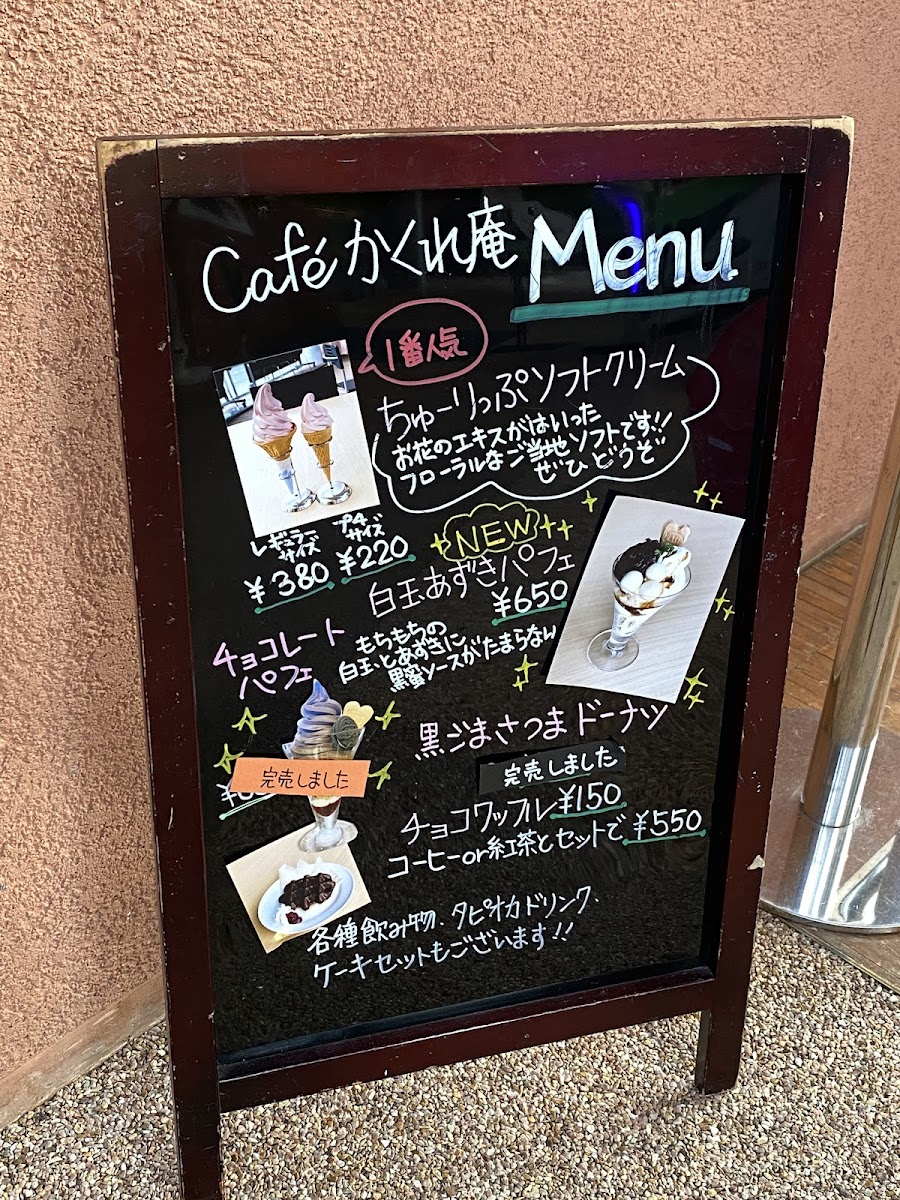 Caféかくれ庵 Menu
1番人気
ちゅーりっぷソフトクリーム
お花のエキスがはいった
フローラルなご当地ソフトです!!
ぜひ どうぞ
レギュラー
サイズ
¥380
プチ
サイズ
¥220
NEW
白玉あずきパフェ
¥650
もちもちの
白玉とあずきに
黒蜜ソースがたまらない
チョコレート
パフェ
完売しました
黒ごまさつまドーナツ
完売しました
チョコワッフル¥150
コーヒーor紅茶とセットで¥550
各種飲み物、タピオカドリンク、
ケーキセットもございます!!